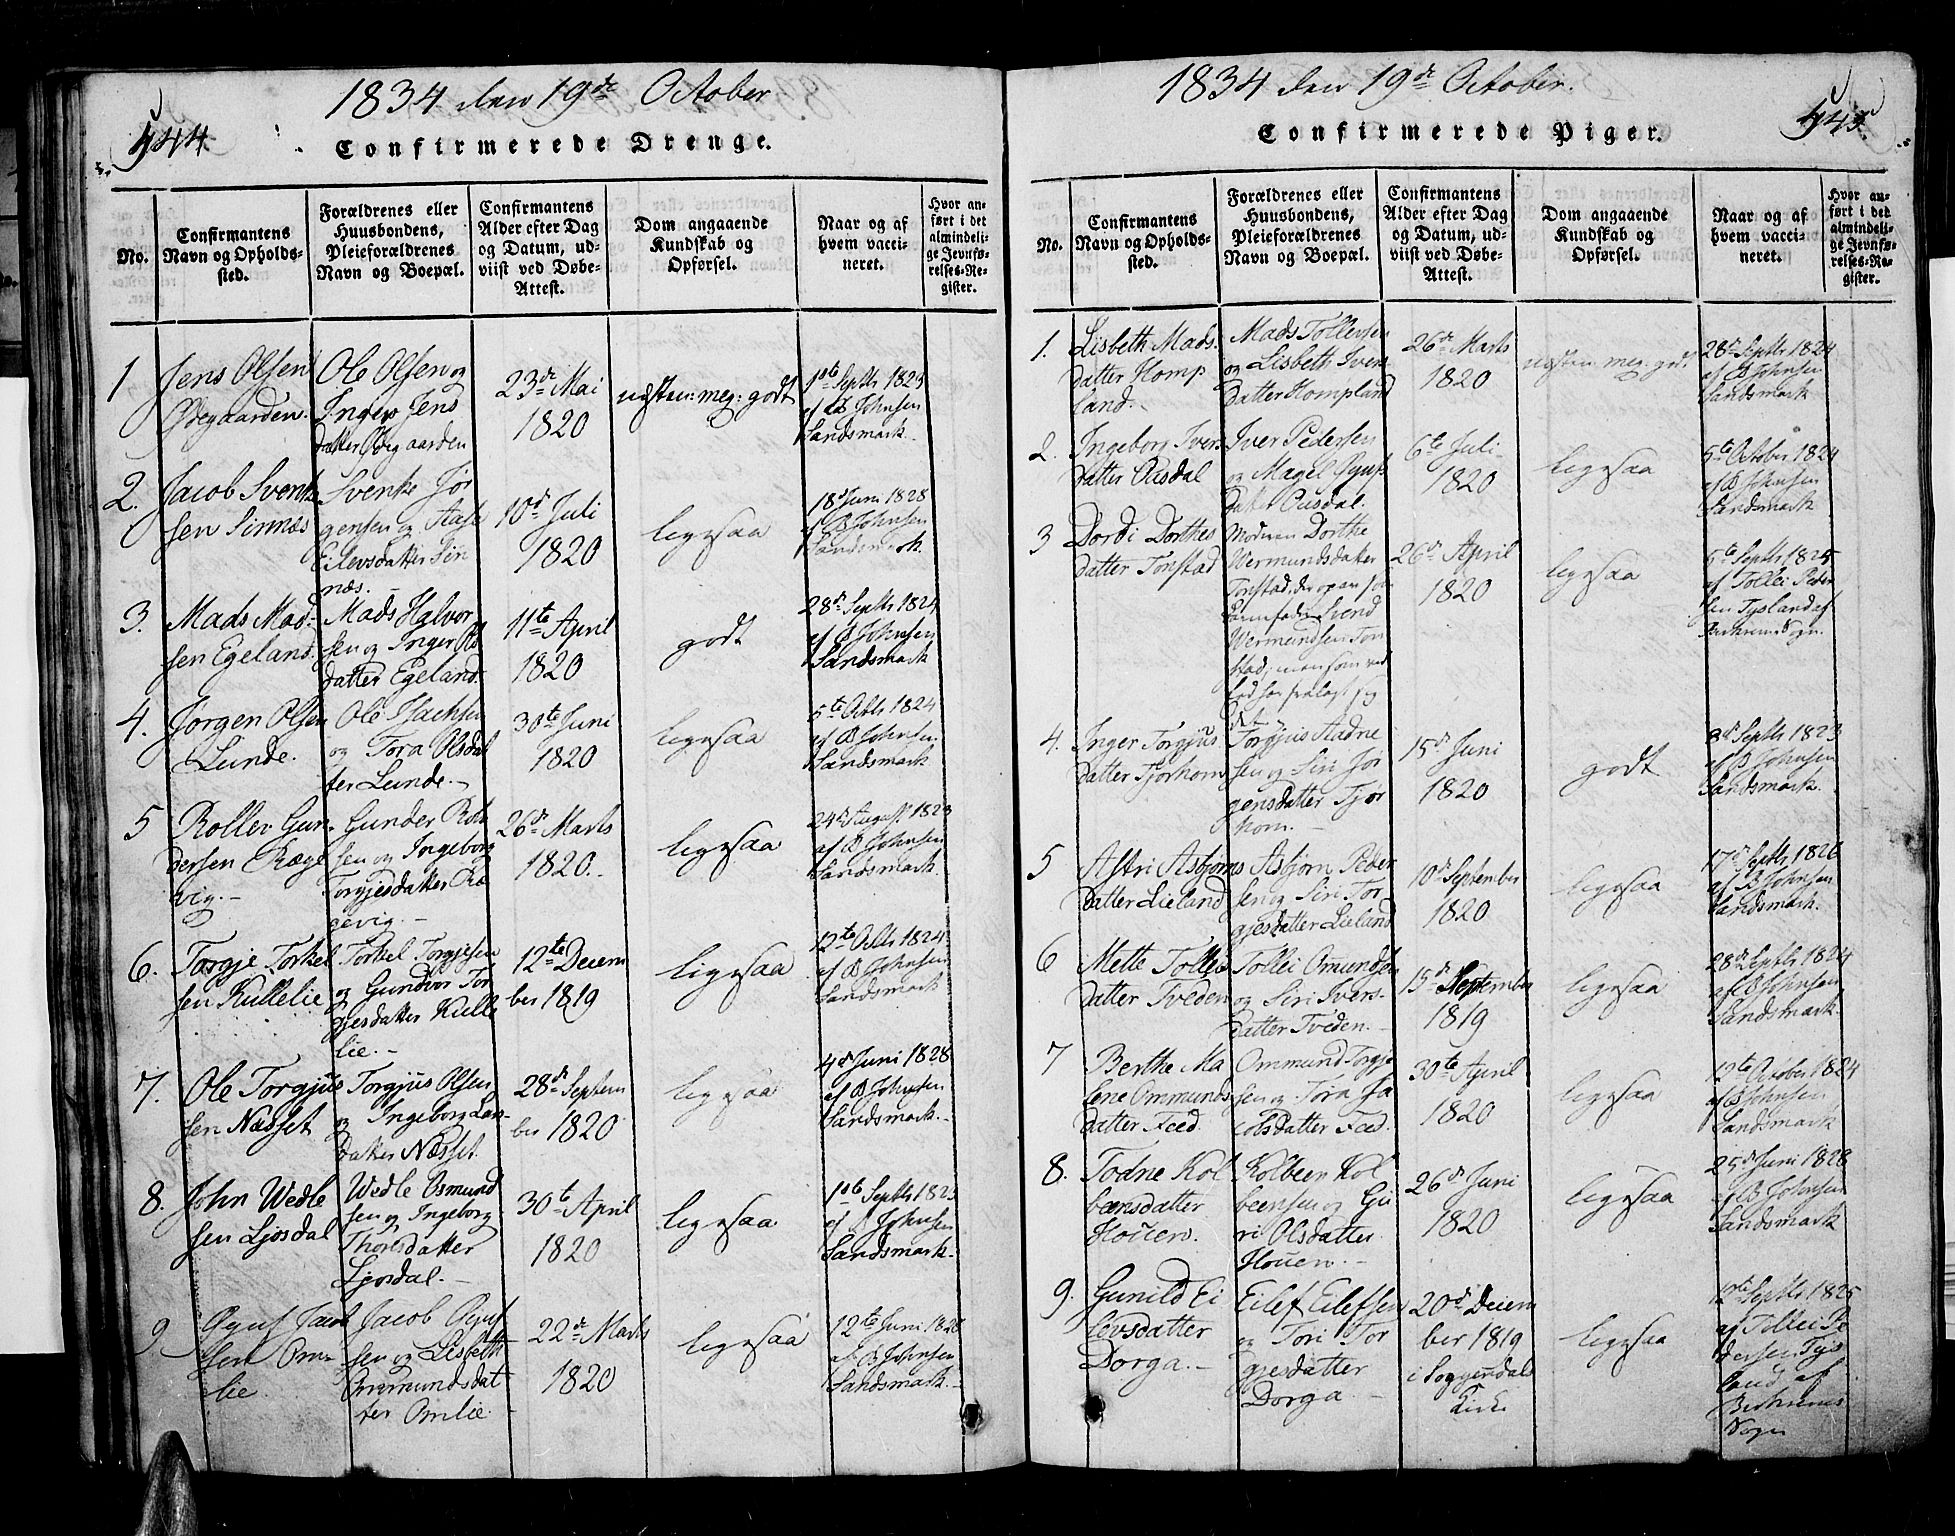 1834 den 19de October
544
Confirmerede Drenge.
No.
Confirmantens
Navn og Opholds-
sted.
Forældrenes eller
Huusbondens,
Pleieforældrenes
Navn og Boepæl.
Confirmantens
Alder efter Dag
og Datum, ud-
viist ved Døbe-
Attest.
Dom angaaende
Kundskab og
Opførsel.
Naar og af
hvem vacci-
neret.
Hvor an-
ført i det
almindeli-
ge Jevnfø-
relses-Re-
gister.
1
Jens Olsen
Ødegaarden.
Ole Olsen og
Inger Jens
datter Ødegaarden
23de Mai
1820
næsten meg: godt
1ste Septbr 1823
af B Johnsen
Sandsmark.
2.
Jacob Svenk
sen Sirnæs
Svenke Jør
gensen og Aase
Eilevsdatter Sir
næs.
10de Juli
1820
ligesaa
18de Juni 1828
af B Johnsen
Sandsmark.
3.
Mads Mad-
sen Egelans.
Mads Halvor
sen og Inger Ols
datter Egeland.
11te April
1820
godt
28de Septbr 1824
af B Johnsen
Sandsmark
4.
Jørgen Olsen
Lunde.
Ole
og Tora Olsdat
ter Lunde.
30te Juni
1820
ligesaa
5te Octbr 1824
af B Johnsen
Sandsmark
5
Rollev Gun-
dersen Ræge
vig.
Gunder Roll
sen og Ingeborg
Torgjesdatter Ræ
gevig.
26de Marts
1820.
ligesaa
24de August 1823
af B Johnsen
Sandsmark.
6.
Torgje Torkel
sen Kullelie
Torkel Torgjesen
og Gundvor Tor
gjesdatter Kielle
lie.
12te Decem
ber 1819
ligesaa
12te Octbr 1824
af B Johnsen
Sandsmark
7.
Ole Torgjus
sen Næsset
Torgjus Olsen
og Ingeborg Lars-
datter Næsset.
28de Septem
ber 1820
ligesaa
4de Juni 1828
af B Johnsen
Sandsmark.
8.
John Wedle
sen Ljosdal
Wedle Osmund
sen og Ingeborg
Thorsdatter
Ljosdal.
30te April
1820
ligesaa
1ste Septbr 1823
af B Johnsen
Sandsmark.
9
Gyuf Jacob
sen Om-
lie
Jacob Gyuf
sen og Lisbeth
Ommundsdat
ter Omlie.
22de Marts
1820
ligesaa
12te Juni 1828
af B Johnsen
Sandsmark.
1834 den 19de October.
545
Confirmerede Piger.
No.
Confirmantens
Navn og Opholds-
sted.
Forældrenes eller
Huusbondens,
Pleieforældrenes
Navn og Boepæl.
Confirmantens
Alder efter Dag
og Datum, ud-
viist ved Døbe-
Attest.
Dom angaaende
Kundskab og
Opførsel.
Naar og af
hvem vacci-
neret.
Hvor an-
ført i det
almindeli-
ge Jevnfø-
relses-Re-
gister.
1.
Lisbeth Mads-
datter Homp
land.
Mads Tollevsen
og Lisbeth Ivers
datter Hompland
26de Marts
1820
næsten meg. godt
28de Septbr 1824
af B Johnsen
Sandsmark
2.
Ingeborg Ivers
datter Ousdal
Iver Pedersen
og Magel Gyufs
dater Ousdal.
6te Juli
1820
ligesaa
5te October 1824
af B Johnsen
Sandsmark
3
Dordi Dorthes
datter Tonstad
Moderen Dorthe
Wermundsdatter
Tonstad, der opgav som
Barnefader Svend
Wermundsen Ton
stad, men som ved
26de April
1820
ligesaa
5te Septbr 1825
af Tollei Peder
sen Tysland af
Sogn.
4.
Inger Torgjus
datter Tjørhom
Torgjus Aadne
sen og Siri Jør
gensdatter Tjør
hom.
15de Juni
1820
godt
3de Septbr 1823
af B Johnsen
Sandsmark.
5
Astri Asbjørns
datter Lieland
Asbjørn Peder
sen og Siri Tor
gjesdatter Lieland
10de September
1820
ligesaa
17de Septbr 1826
af B Johnsen
Sandsmark.
6
Mette Tollei
datter Tveden
Tollei Omundsen
og Siri Ivers-
datter Tveden.
15de September
1819
ligesaa
28de Septbr 1824
af B Johnsen
Sandsmark.
7
Berthe Ma
lene Ommunds
datter Feed.
Ommund Torgje
sen og Tora Ja
cobsdatter Feed.
30te April
1820
ligesaa
12te October 1824
af B Johnsen
Sandsmark
8.
Todne Kol
beensdatter
Houen.
Kolbeen Kol
beensen og Gu
ri Olsdatter
Houen.
26de Juni
1820
ligesaa
25de Juni 1828
af B Johnsen
Sandsmark
9.
Gunild Ei
levsdatter
Dorga.
Eilef Eilefsen
og Tori Tor
gjesdatter
Dorga
20de Decem
ber 1819
i Soggendals
Kirke
ligesaa
Septbr 1825
af Tollei Pe
dersen Tys
land af
Sogn